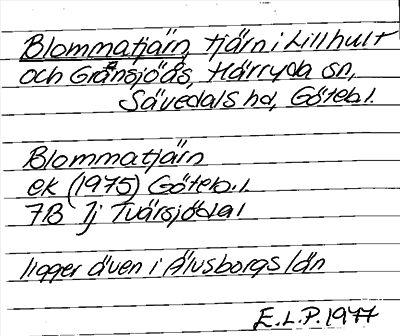 Blommatjärn, tjärn i Lillhult
och Gränsjöås, Härryda sn,
Sävedals hd, Götebl.
Blommatjärn
ek (1975) Göteb.l.
7B 1j Tvärsjödal
ligger även i Älvsborgs län
E.L.P. 1977